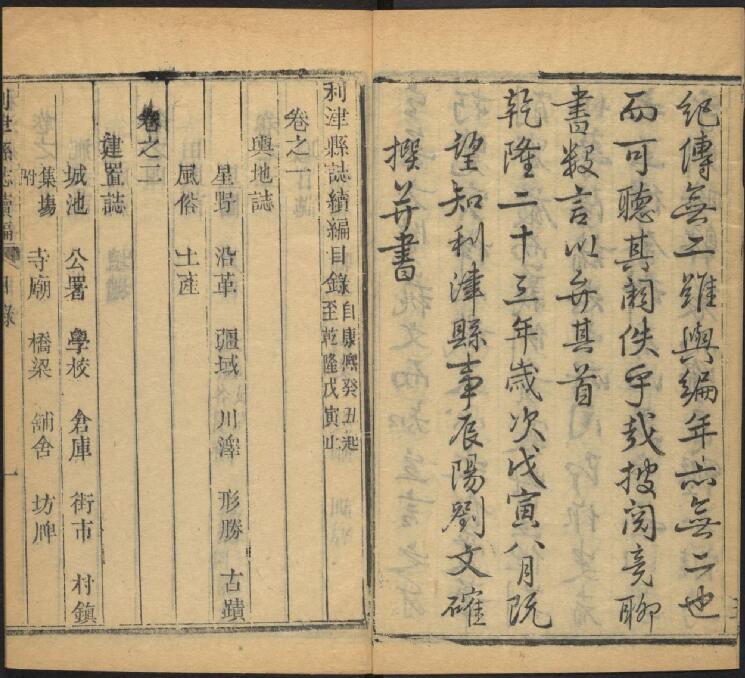 紀傳無二雖與編年亦無二也
而可聽其闕佚乎哉披閱竟聊
書數言以弁其首
乾隆二十三年歲次戊寅八月既
望知利津縣事辰陽劉文確
撰并書
利津縣誌續編目錄自康熙癸丑起至乾隆戊寅止
卷之一
輿地誌
星野 沿革 疆域 川澤 形勝 古蹟
風俗 土產
卷之二
建置誌
城池 公署 學校 倉庫 街市 村鎮
集場附 寺廟 橋梁 舖舍 坊牌
利津縣志續編 目錄 一